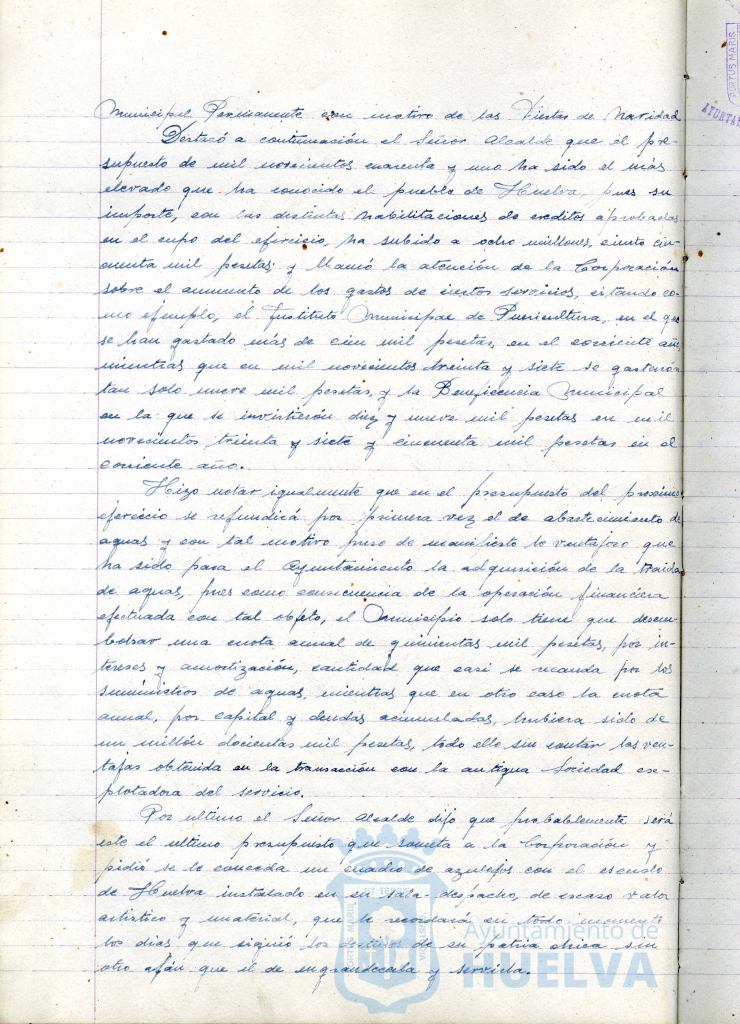 Municipal Permanente con motivo de las Fiestas de Navidad
Destacó a continuación el Señor Alcalde que el pre-
supuesto de mil novecientos cuarenta y uno ha sido el más
elevado que ha conocido el pueblo de Huelva, pues su
importe, con las distintas habilitaciones de creditos aprobadas
en el cupo del ejercicio, ha subido a ocho millones, ciento cin-
cuenta mil pesetas; y llamó la atención de la Corporación
sobre el aumento de los gastos de ciertos servicios, citando co-
mo ejemplo, el Instituto Municipal de Puericultura, en el que
se han gastado más de cien mil pesetas, en el corriente año,
mientras que en mil novecientos treinta y siete se gastaron
tan solo nueve mil pesetas, y la Beneficencia Municipal
en la que se invirtierón diez y nueve mil pesetas en mil
novecientos treinta y siete y cincuenta mil pesetas en el
corriente año.
Hizo notar igualmente que en el presupuesto del proximo
ejercicio se refundirá por primera vez el de abastecimiento de
aguas y con tal motivo puso de manifiesto lo ventajoso que
ha sido para el Ayuntamiento la adquisición de la traida
de aguas, pues como consecuencia de la operación financiera
efectuada con tal objeto, el Municipio solo tiene que desem-
bolsar una cuota anual de quinientas mil pesetas, por in-
tereses y amortización, cantidad que casi se recauda por los
suministros de aguas, mientras que en otro caso la cuota
anual, por capital y deudas acumuladas, hubiera sido de
un millón docientas mil pesetas, todo ello sin contar las ven-
tajas obtenida en la transacción con la antigua Sociedad ex-
plotadora del servicio.
Por ultimo el Señor Alcalde dijo que probablemente será
este el ultimo presupuesto que someta a la Corporación y
pidió se le conceda un cuadro de azulejos con el escudo
de Huelva instalado en su sala-despacho, de escaso valor
artistico y material, que le recordará en todo momento
los dias que siguió los destinos de su patria chica sin
otro afán que el de engrandecerla y servirla.
PORTUS MARIS
Ayuntamiento de
HUELVA